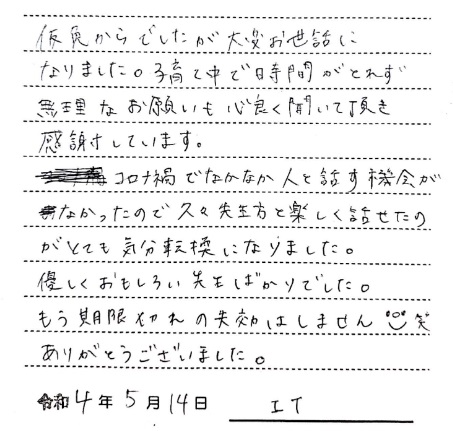 仮免からでしたが大変お世話に
なりました。子育て中で時間がとれず
無理なお願いも心良く聞いて頂き
感謝しています。
コロナ禍でなかなか人と話す機会が
なかったので久々先生方と楽しく話せたの
がとても気分転換になりました。
優しくおもしろい先生ばかりでした。
もう期限切れの失効はしません笑
ありがとうございました。
令和4年5月14日 I T